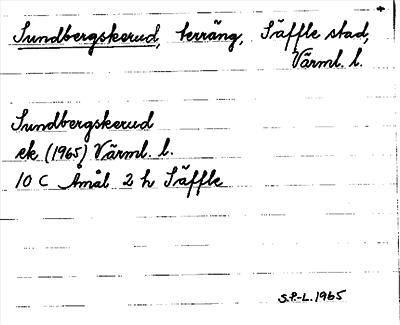 Sundbergskerud, terräng, Säffle stad,
Värml. l.
Sundbergskerud
ek (1965) Värml. l.
10 C Åmål 2 h Säffle
S.P.-L. 1965